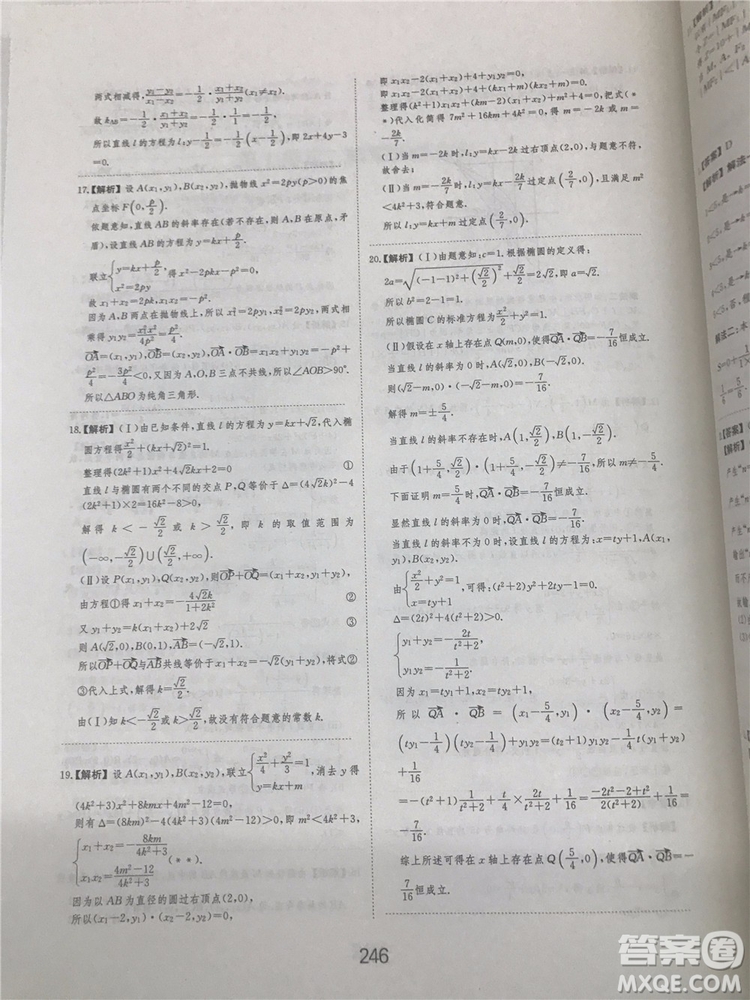 两式相减得,(y₁-y₂)/(x₁-x₂)=-1/2·(x₁+x₂)/(y₁+y₂)(x₁≠x₂).
故k_AB=-1/2·(x₁+x₂)/(y₁+y₂)=-1/2·1/1=-1/2.
所以直线l的方程为y-1/2=-1/2(x-1/2),即2x+4y-3
=0.
17.【解析】设A(x₁,y₁),B(x₂,y₂),抛物线x²=2py(p>0)的焦
点坐标F(0,p/2).
依题意知,直线AB的斜率存在(若不存在,则A,B在原点,矛
盾),设直线AB的方程为y=kx+p/2.
联立{y=kx+p/2
x²=2py
故x₁+x₂=2pk,x₁x₂=-p².
因为A,B在抛物线上,所以x₁²=2py₁,x₂²=2py₂,两式相
乘得y₁y₂=x₁²x₂²/4p²=p²/4.
OA=(x₁,y₁),OB=(x₂,y₂),OA·OB=x₁x₂+y₁y₂=-p²+
p²/4=-3p²/4<0,又因为A,O,B三点不共线,所以∠AOB>90°.
所以△ABO为钝角三角形.
18.【解析】(Ⅰ)由已知条件,直线l的方程为y=kx+√2,代入椭
圆方程得x²/2+(kx+√2)²=1.
整理得(2k²+1)x²+4√2kx+2=0 ①
直线与椭圆有两个不同的交点P,Q等价于Δ=(4√2k)²-4
(2k²+1)×2=16k²-8>0,
解得k<-√2/2或k>√2/2,即k的取值范围为
(-∞,-√2/2)∪(√2/2,+∞).
(Ⅱ)设P(x₁,y₁),Q(x₂,y₂),则OP+OQ=(x₁+x₂,y₁+y₂),
由方程①得x₁+x₂=-4√2k/(1+2k²) ②
又y₁+y₂=k(x₁+x₂)+2√2 ③
则A(√2,0),B(0,1),AB=(-√2,1).
所以OP+OQ与AB共线等价于x₁+x₂=-√2(y₁+y₂),将式②
③代入上式,解得k=√2/2.
由(Ⅰ)知k<-√2/2或k>√2/2,故没有符合题意的常数k.
19.【解析】设A(x₁,y₁),B(x₂,y₂),联立{y=kx+m
x²/4+y²/3=1,消去y得
(4k²+3)x²+8kmx+4m²-12=0,
则有Δ=(8km)²-4(4k²+3)(4m²-12)>0,即m²<4k²+3,
{x₁+x₂=-8km/(4k²+3)
x₁x₂=(4m²-12)/(4k²+3) (**).
因为以AB为直径的圆过右顶点(2,0),
所以(x₁-2,y₁)·(x₂-2,y₂)=0,
即x₁x₂-2(x₁+x₂)+4+y₁y₂=0,
即x₁x₂-2(x₁+x₂)+4+(kx₁+m)(kx₂+m)=0.
整理得(k²+1)x₁x₂+(km-2)(x₁+x₂)+m²+4=0,把式(*
*)代入化简得7m²+16km+4k²=0,得m=-2k或m=
-2k/7.
(Ⅰ)当m=-2k时,l:y=kx-2k过右顶点(2,0),不合题意,
故舍去;
(Ⅱ)当m=-2k/7时,l:y=kx-2k/7过定点(2/7,0),且满足m²
<4k²+3,符合题意.
所以l:y=kx-2k/7过定点(2/7,0).
20.【解析】(Ⅰ)由题意知:c=1.根据椭圆的定义得:
2a=√((-1-1)²+(√2/2)²)+√2/2=2√2,即a=√2.
所以b²=2-1=1.
所以椭圆C的标准方程为x²/2+y²=1.
(Ⅱ)假设在x轴上存在点Q(m,0),使得QA·QB=-7/16恒成立.
当直线l的斜率为0时,A(√2,0),B(-√2,0).
则(√2-m,0)·(-√2-m,0)=-7/16.
解得m=±5/4.
当直线l的斜率不存在时,A(1,√2/2),B(1,-√2/2).
由于(1+5/4,√2/2)·(1+5/4,-√2/2)≠-7/16,所以m≠-5/4.
下面证明m=5/4时,QA·QB=-7/16恒成立.
显然直线l的斜率为0时,QA·QB=-7/16.
当直线l的斜率不为0时,设直线l的方程为:x=ty+1,A(x₁,
y₁),B(x₂,y₂).
由{x²/2+y²=1
x=ty+1,可得:(t²+2)y²+2ty-1=0.
Δ=(2t)²+4(t²+2)>0.
{y₁+y₂=-2t/(t²+2)
y₁y₂=-1/(t²+2).
因为x₁=ty₁+1,x₂=ty₂+1,
所以QA·QB=(x₁-5/4,y₁)·(x₂-5/4,y₂)=
(ty₁-1/4)(ty₂-1/4)+y₁y₂=(t²+1)y₁y₂-1/4t(y₁+y₂)+1/16
=-(t²+1)1/(t²+2)+t/4×2t/(t²+2)+1/16=(-2t²-2+t²)/2(t²+2)+1/16=
-7/16.
综上所述可得在x轴上存在点Q(5/4,0),使得QA·QB=-
7/16恒成立.
246
答案圈
MXQE.COM